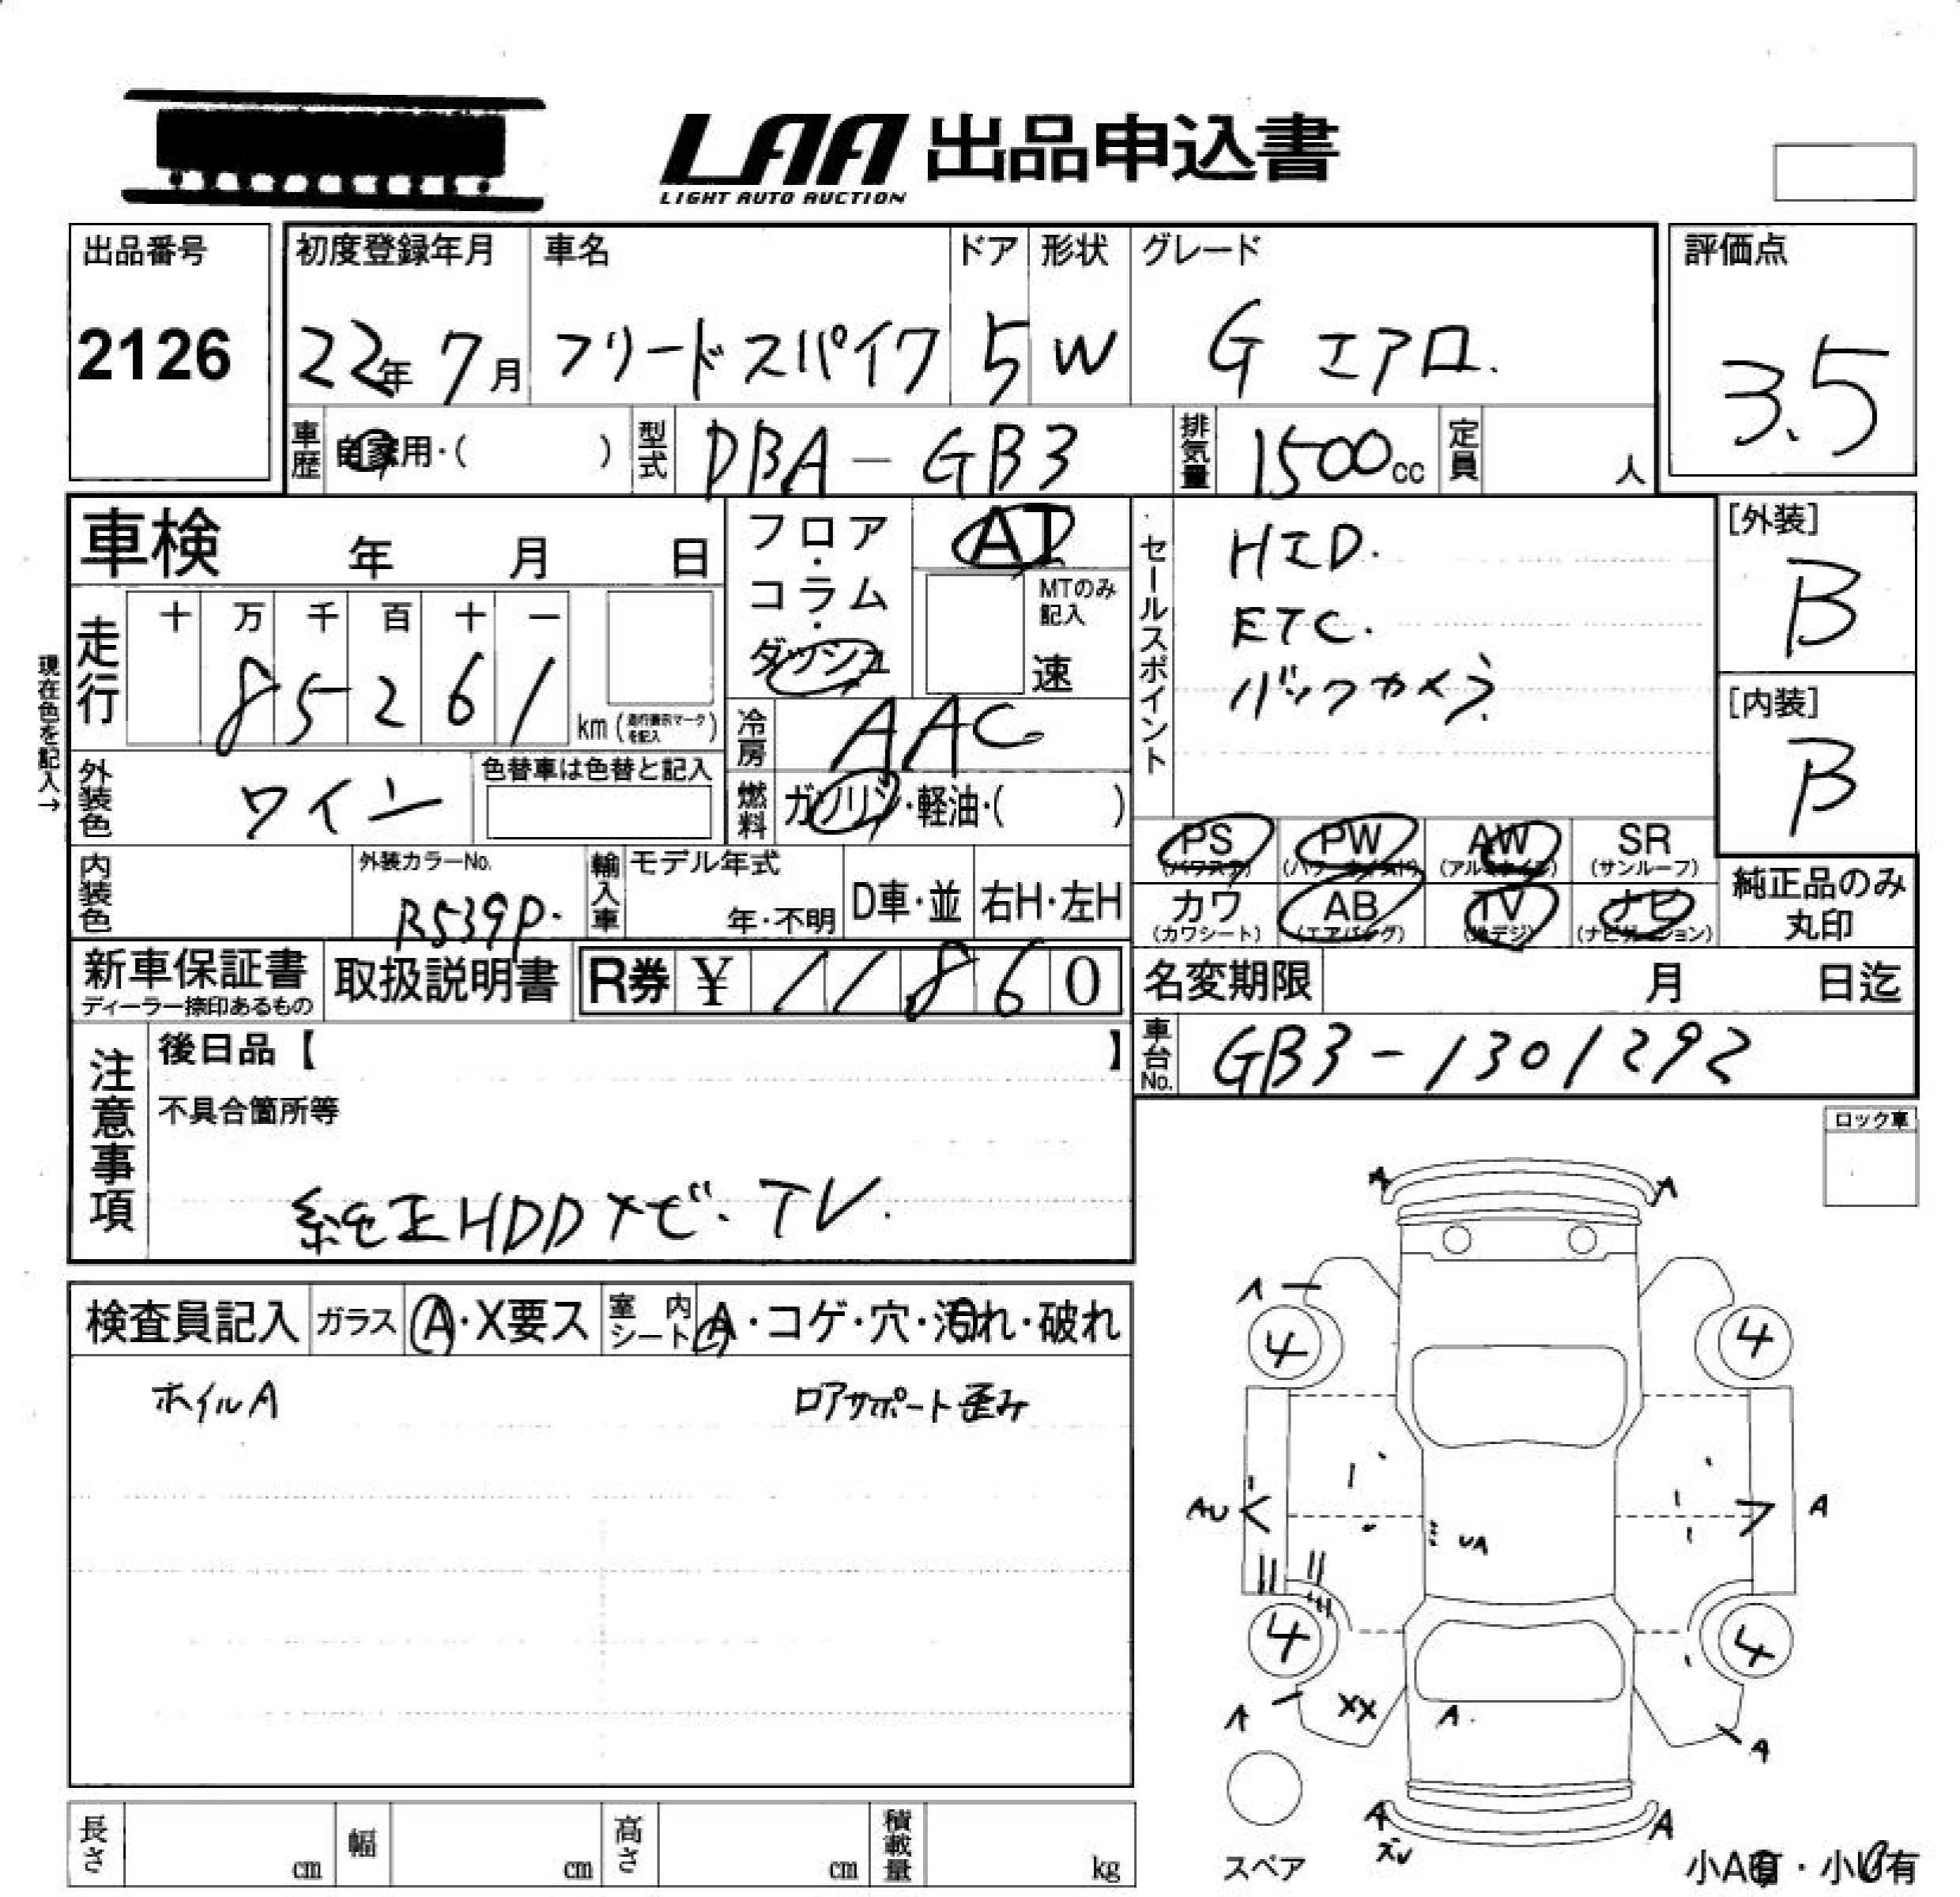 LAA 出品申込書
LIGHT AUTO AUCTION
出品番号 初度登録年月 車名 ドア 形状 グレード 評価点
2126 22年 7月 フリードスパイク 5 W G エアロ. 3.5
車歴 自家用・( ) 型式 DBA-GB3 排気量 1500cc 定員 人
車検 年 月 日 フロア・コラム・ダッシュ AT セールスポイント HID. [外装]
MTのみ記入 速 ETC. B
走行 十 万 千 百 十 一 バックカメラ [内装]
8 5 2 6 1 km (走行表示マークを記入) 冷房 AAC B
現在色を記入→
外装色 ワイン 色替車は色替と記入 燃料 ガソリン・軽油・( )
PS (パワステ) PW (パワーウインド) AW (アルミホイル) SR (サンルーフ)
カワ (カワシート) AB (エアバッグ) TV (地デジ) ナビ (ナビゲーション) 純正品のみ丸印
内装色 外装カラーNo. R539P. 輸入車 モデル年式 年・不明 D車・並 右H・左H
新車保証書 ディーラー捺印あるもの 取扱説明書 R券 ¥ 11860 名変期限 月 日迄
注意事項 後日品【 】 車台No. GB3-1301292
不具合箇所等 ロック車
純正HDDナビ・TV.
検査員記入 ガラス A・X要ス 室内シート A・コゲ・穴・汚れ・破れ
ホイルA ロアサポート歪み
A A
A
4 4
AU A
UA
4 4
A XX A. A
A A
スペア 小A有・小U有
長さ cm 幅 cm 高さ cm 積載量 kg